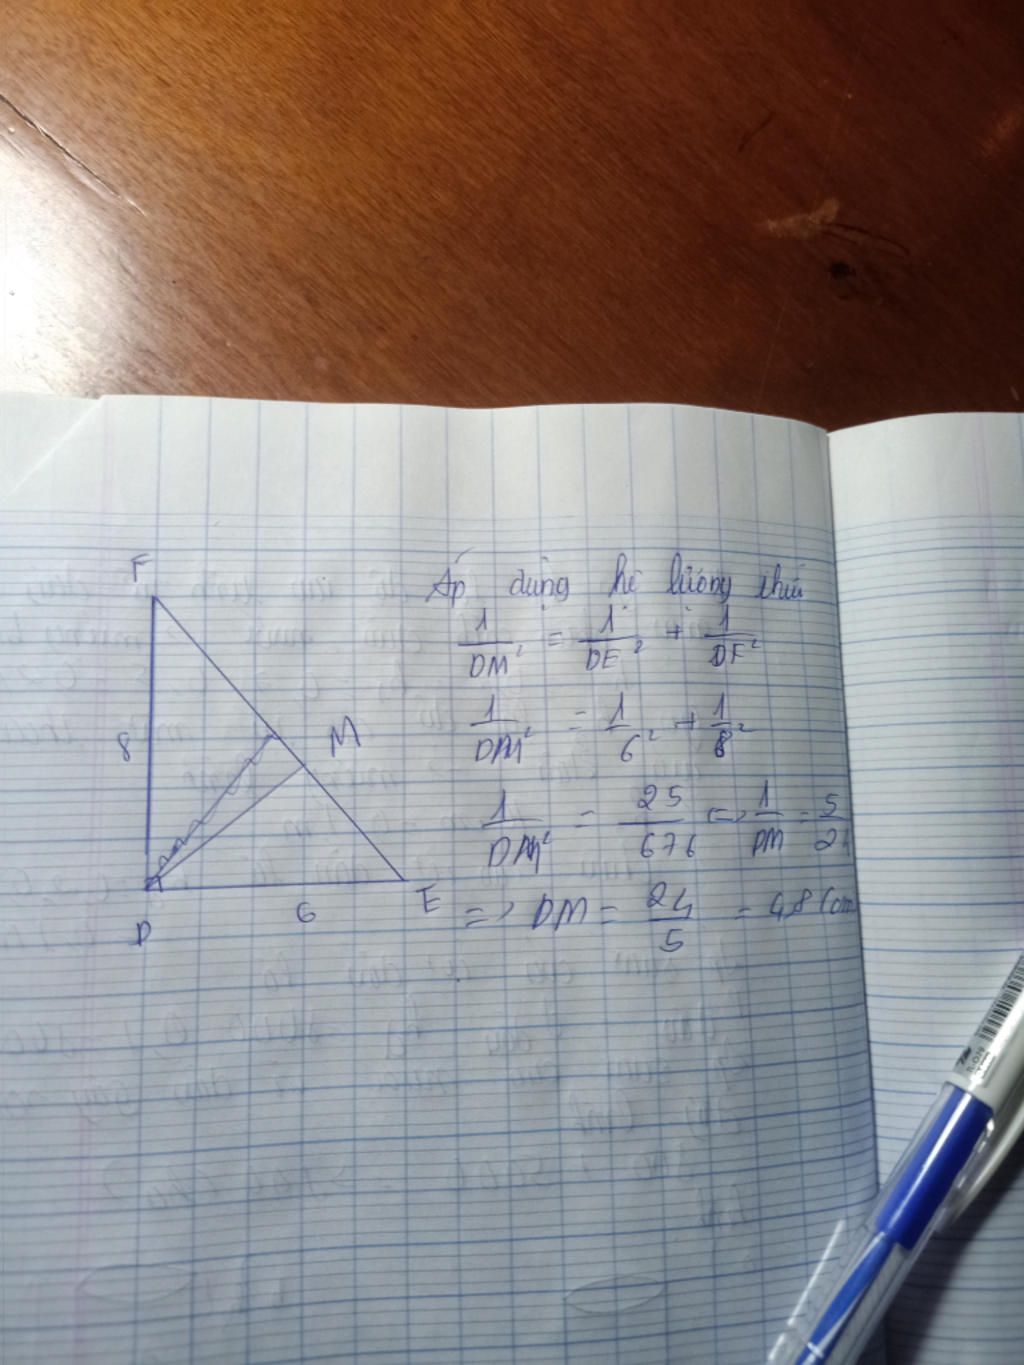 F
Áp dụng hệ lượng thức
1/DM² = 1/DE² + 1/DF²
M
8
1/DM² = 1/6² + 1/8²
1/DM² = 25/676 => 1/DM = 5/24
D
6
E
=> DM = 24/5 = 4,8 (cm